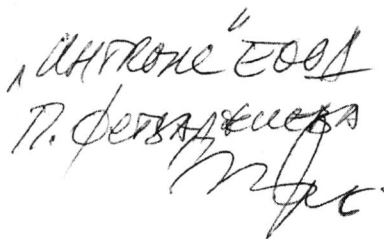 „Интконс" ЕООД
П. Фетваджиева